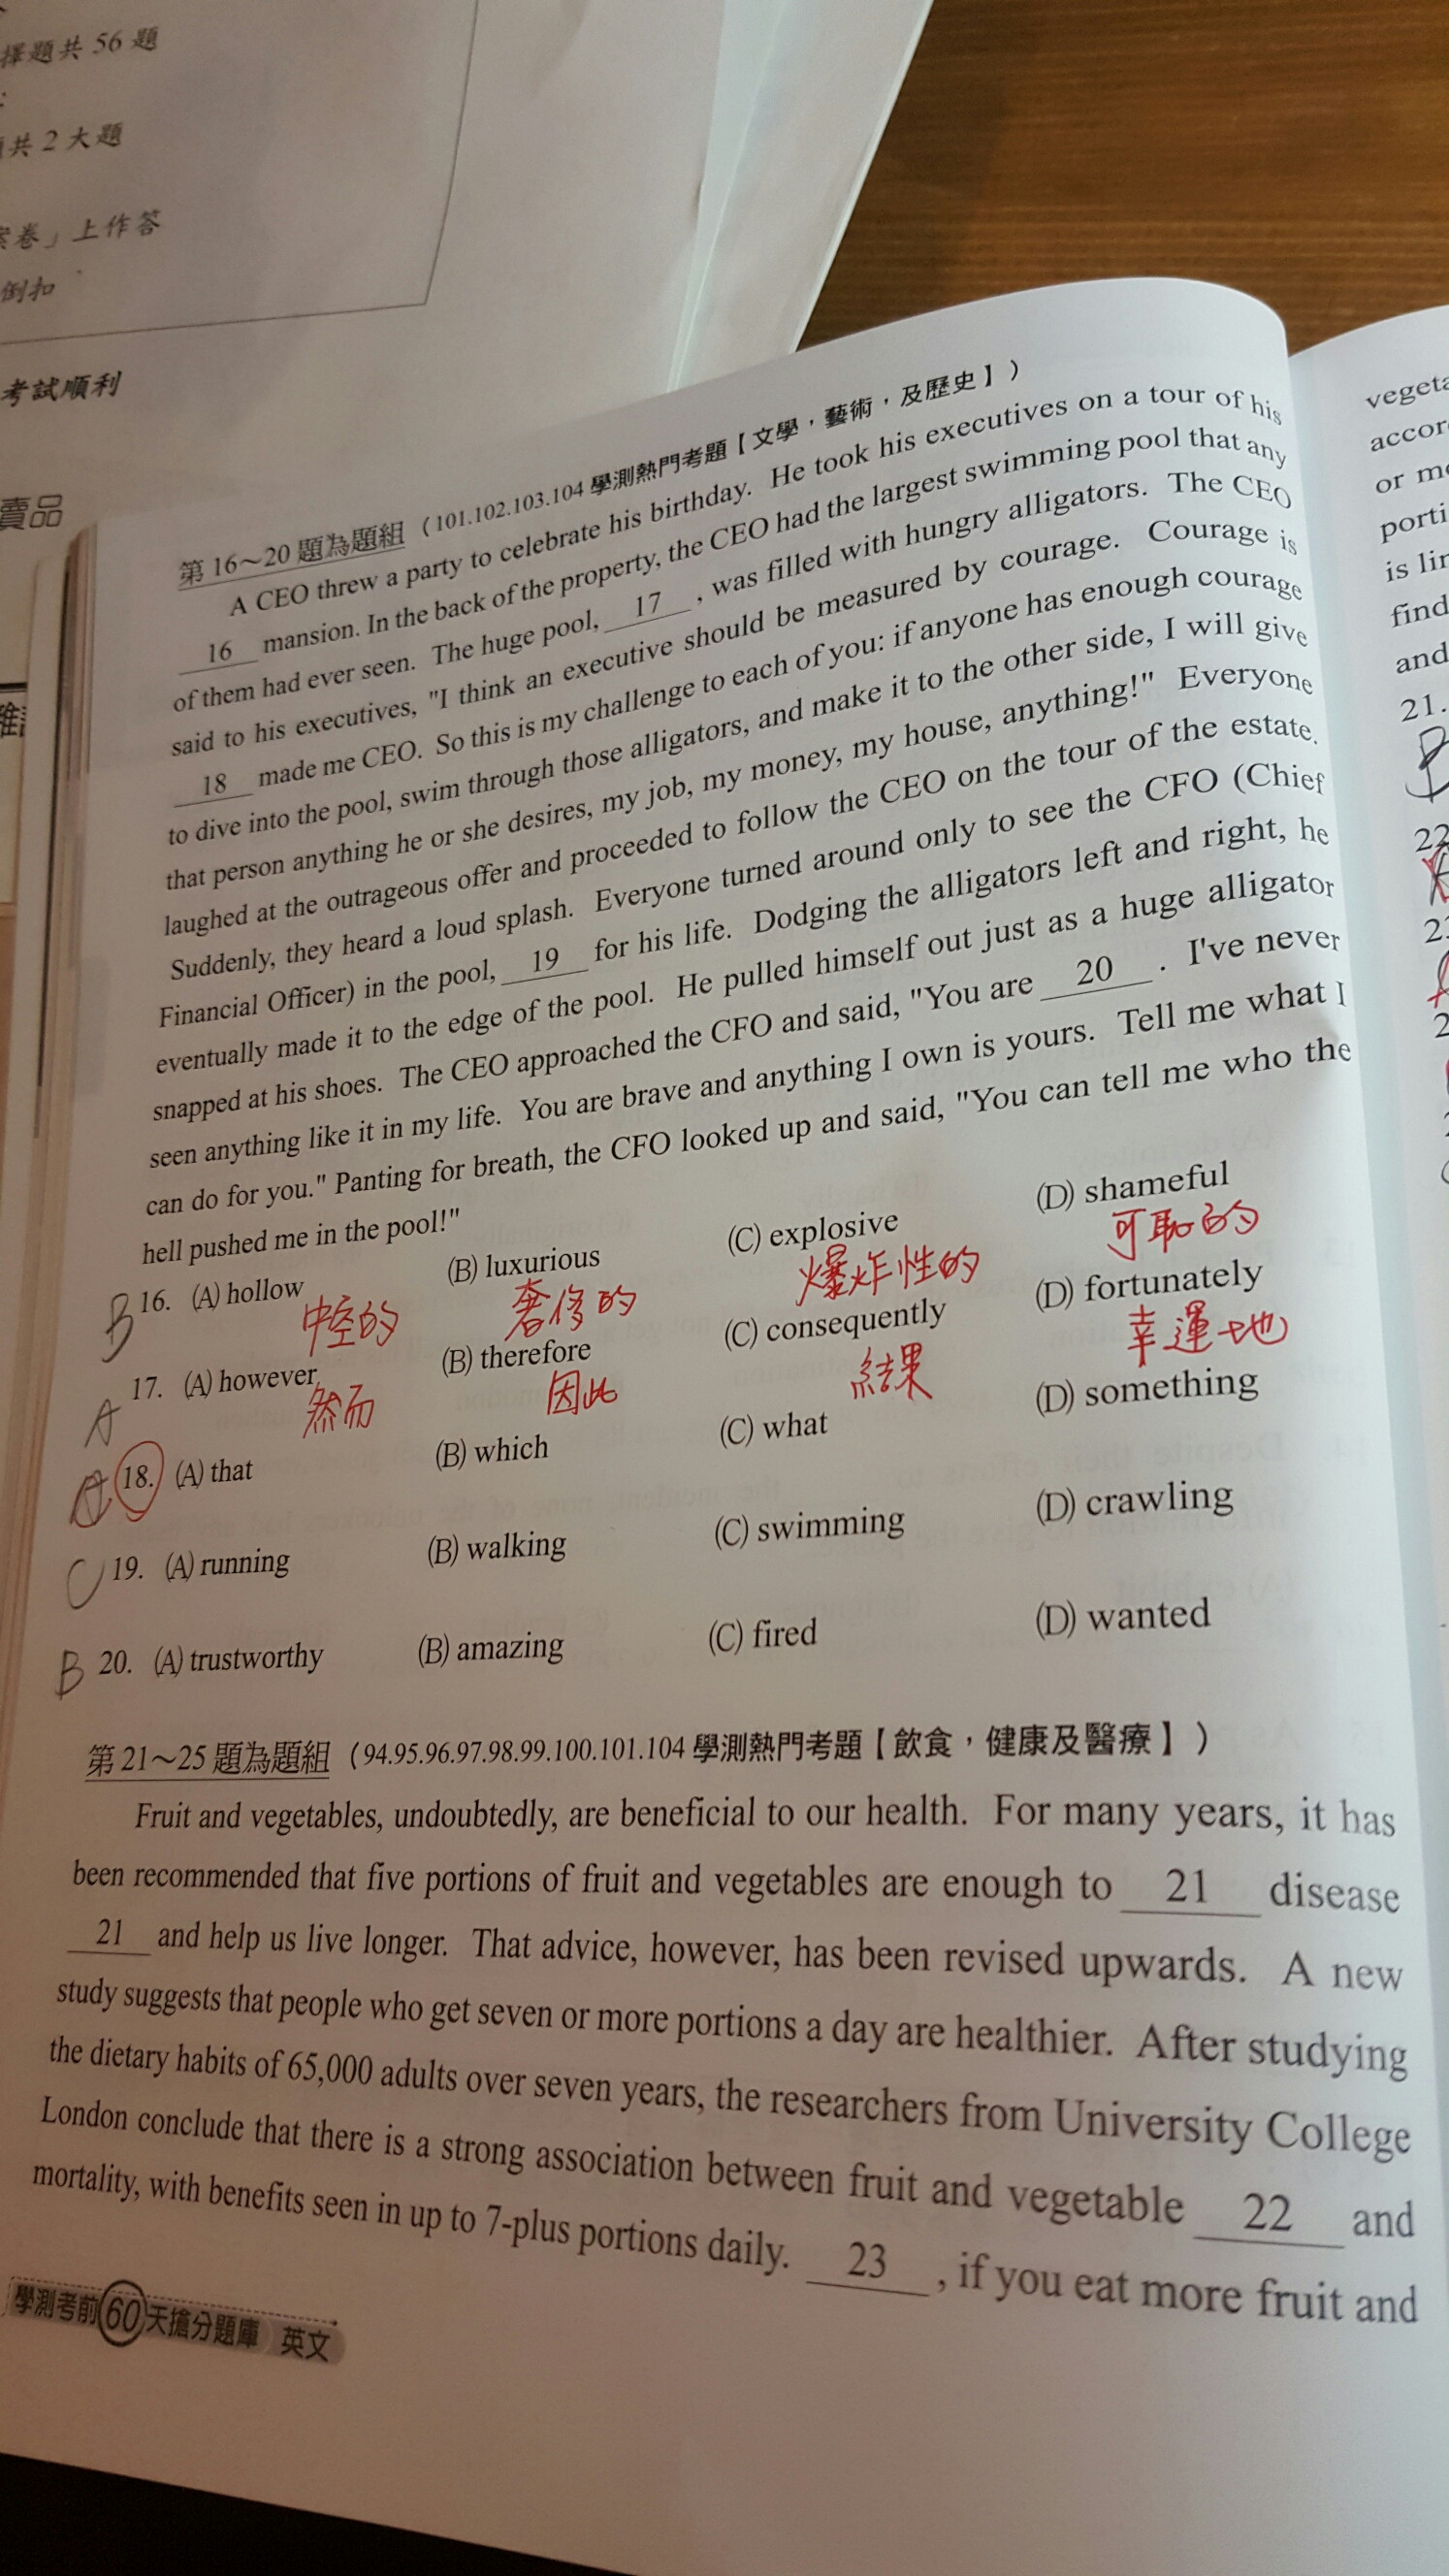 擇題共 56 題
共 2 大題
卷」上作答
倒扣
考試順利
賣品
第 16～20 題為題組（101.102.103.104 學測熱門考題【文學，藝術，及歷史】）
A CEO threw a party to celebrate his birthday. He took his executives on a tour of his
16 mansion. In the back of the property, the CEO had the largest swimming pool that any
of them had ever seen. The huge pool, 17 , was filled with hungry alligators. The CEO
said to his executives, "I think an executive should be measured by courage. Courage is
18 made me CEO. So this is my challenge to each of you: if anyone has enough courage
to dive into the pool, swim through those alligators, and make it to the other side, I will give
that person anything he or she desires, my job, my money, my house, anything!" Everyone
laughed at the outrageous offer and proceeded to follow the CEO on the tour of the estate.
Suddenly, they heard a loud splash. Everyone turned around only to see the CFO (Chief
Financial Officer) in the pool, 19 for his life. Dodging the alligators left and right, he
eventually made it to the edge of the pool. He pulled himself out just as a huge alligator
snapped at his shoes. The CEO approached the CFO and said, "You are 20 . I've never
seen anything like it in my life. You are brave and anything I own is yours. Tell me what I
can do for you." Panting for breath, the CFO looked up and said, "You can tell me who the
hell pushed me in the pool!"
B 16. (A) hollow (B) luxurious (C) explosive (D) shameful
中空的 奢侈的 爆炸性的 可恥的
A 17. (A) however (B) therefore (C) consequently (D) fortunately
然而 因此 結果 幸運地
18. (A) that (B) which (C) what (D) something
C 19. (A) running (B) walking (C) swimming (D) crawling
B 20. (A) trustworthy (B) amazing (C) fired (D) wanted
第 21～25 題為題組（94.95.96.97.98.99.100.101.104 學測熱門考題【飲食，健康及醫療】）
Fruit and vegetables, undoubtedly, are beneficial to our health. For many years, it has
been recommended that five portions of fruit and vegetables are enough to 21 disease
21 and help us live longer. That advice, however, has been revised upwards. A new
study suggests that people who get seven or more portions a day are healthier. After studying
the dietary habits of 65,000 adults over seven years, the researchers from University College
London conclude that there is a strong association between fruit and vegetable 22 and
mortality, with benefits seen in up to 7-plus portions daily. 23 , if you eat more fruit and
學測考前60天搶分題庫 英文
vegeta
accor
or mo
porti
is lin
find
and
21.
22